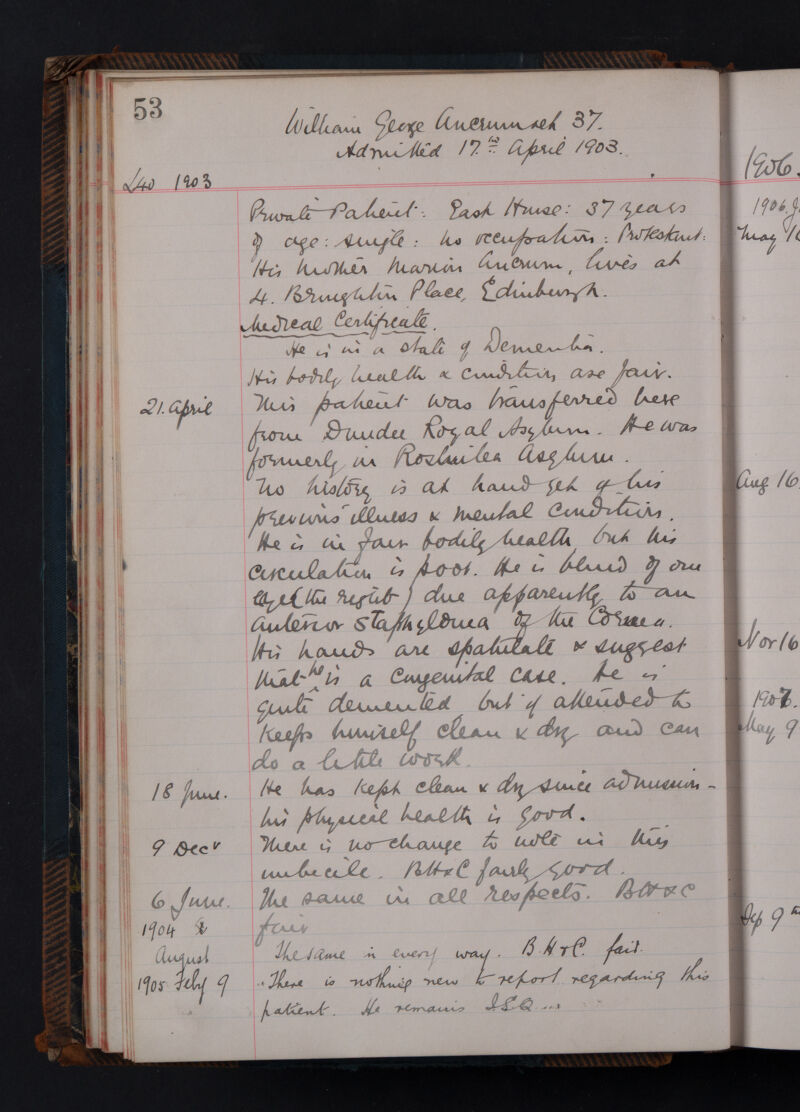 53
William George Ancrum aet 37.
Admitted 17th April 1903.
1903
Private Patient: East House: 37 years
of age: single: no occupation: Protestant:
His mother Marion Ancrum, lives at
4. Broughton Place, Edinburgh.
Medical Certificate.
He is in a state of Dementia.
His bodily health & condition are fair.
21. April This patient was transferred here
from Dundee Royal Asylum. He was
formerly in Rosslynlea Asylum.
No history is at hand yet of his
previous illness & mental condition.
He is in fair bodily health but his
circulation is poor. He is blind of one
eye (the right) due apparently to an
anterior Staphyloma of the Cornea.
His hands are spatulate & suggest
that he is a congenital case. He is
quite demented but if attended to
keeps himself clean & dry and can
do a little work.
18 June. He has kept clean & dry since admission -
his physical health is good.
9 Decr There is no change to note in this
imbecile. BH&C fairly good.
6 June. The same in all respects. BH&C
1904 fair
August The same in every way. B.H&C. fair.
1905 Feby 9 There is nothing new to report regarding this
patient. He remains I.S.Q.
1906.
1906
May
Aug 16
Nov 16
1907.
May 9
Sep 9th